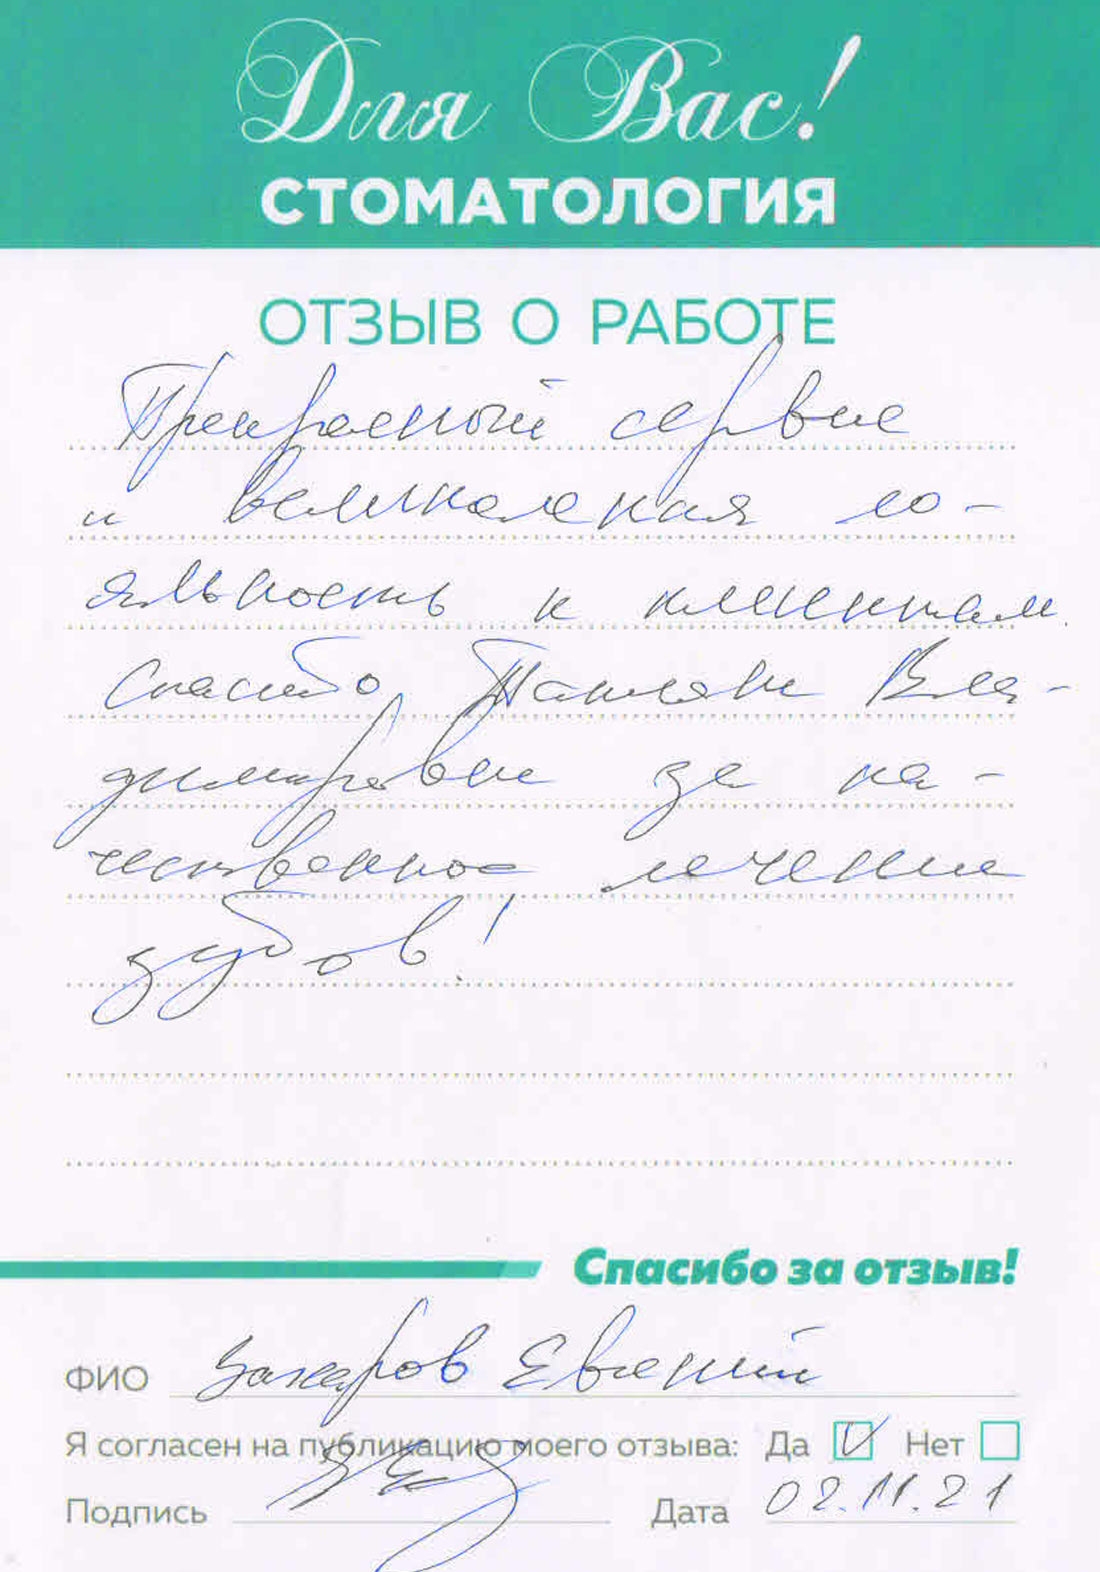 Для Вас!
СТОМАТОЛОГИЯ
ОТЗЫВ О РАБОТЕ
Прекрасный сервис
и великолепная ло-
яльность к клиентам.
Спасибо Татьяне Вла-
димировне за ка-
чественное лечение
зубов!
Спасибо за отзыв!
ФИО Захаров Евгений
Я согласен на публикацию моего отзыва: Да V Нет
Подпись Дата 02.11.21